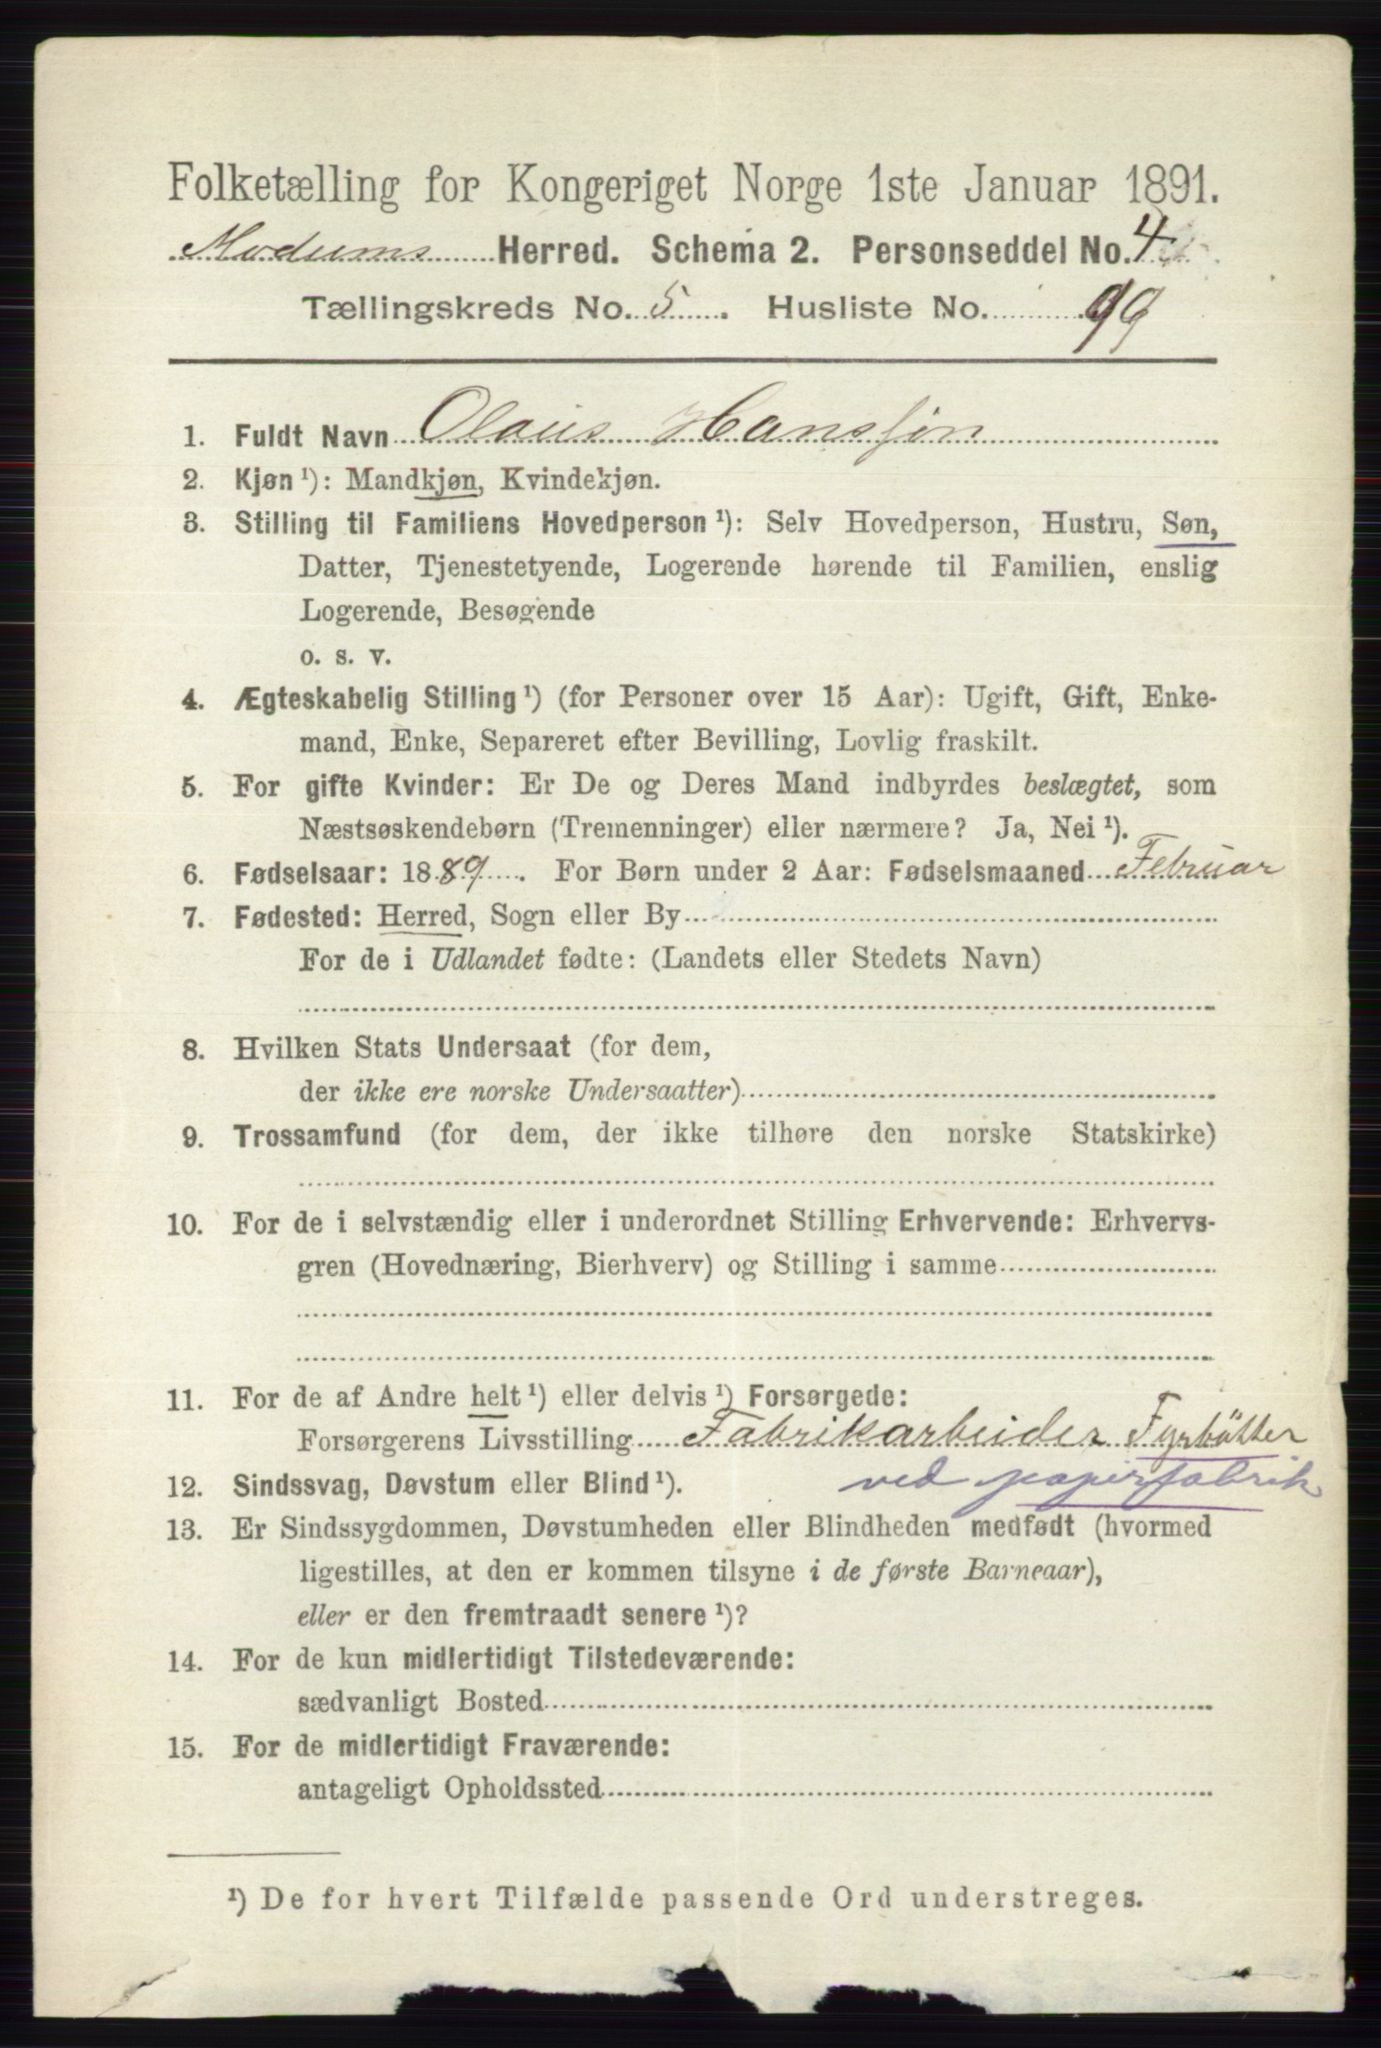 Folketælling for Kongeriget Norge 1ste Januar 1891.
Modums Herred. Schema 2. Personseddel No. 4
Tællingskreds No. 5. Husliste No. 99
1. Fuldt Navn Olaus Hansøn
2. Kjøn ¹): Mandkjøn, Kvindekjøn.
3. Stilling til Familiens Hovedperson ¹): Selv Hovedperson, Hustru, Søn,
Datter, Tjenestetyende, Logerende hørende til Familien, enslig
Logerende, Besøgende
o. s. v.
4. Ægteskabelig Stilling ¹) (for Personer over 15 Aar): Ugift, Gift, Enke-
mand, Enke, Separeret efter Bevilling, Lovlig fraskilt.
5. For gifte Kvinder: Er De og Deres Mand indbyrdes beslægtet, som
Næstsøskendebørn (Tremenninger) eller nærmere? Ja, Nei ¹).
6. Fødselsaar: 1889. For Børn under 2 Aar: Fødselsmaaned Februar
7. Fødested: Herred, Sogn eller By
For de i Udlandet fødte: (Landets eller Stedets Navn)
8. Hvilken Stats Undersaat (for dem,
der ikke ere norske Undersaatter)
9. Trossamfund (for dem, der ikke tilhøre den norske Statskirke)
10. For de i selvstændig eller i underordnet Stilling Erhvervende: Erhvervs-
gren (Hovednæring, Bierhverv) og Stilling i samme
11. For de af Andre helt ¹) eller delvis ¹) Forsørgede:
Forsørgerens Livsstilling Fabrikarbeider Fyrbötter
ved papirfabrik
12. Sindssvag, Døvstum eller Blind ¹).
13. Er Sindssygdommen, Døvstumheden eller Blindheden medfødt (hvormed
ligestilles, at den er kommen tilsyne i de første Barneaar),
eller er den fremtraadt senere ¹)?
14. For de kun midlertidigt Tilstedeværende:
sædvanligt Bosted
15. For de midlertidigt Fraværende:
antageligt Opholdssted
¹) De for hvert Tilfælde passende Ord understreges.